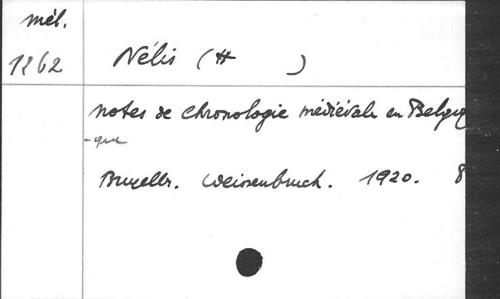 mél.
1262
Nélis (H )
Notes de chronologie médiévale en Belgiq
-que
Bruxelles. Weissenbruch. 1920. 8